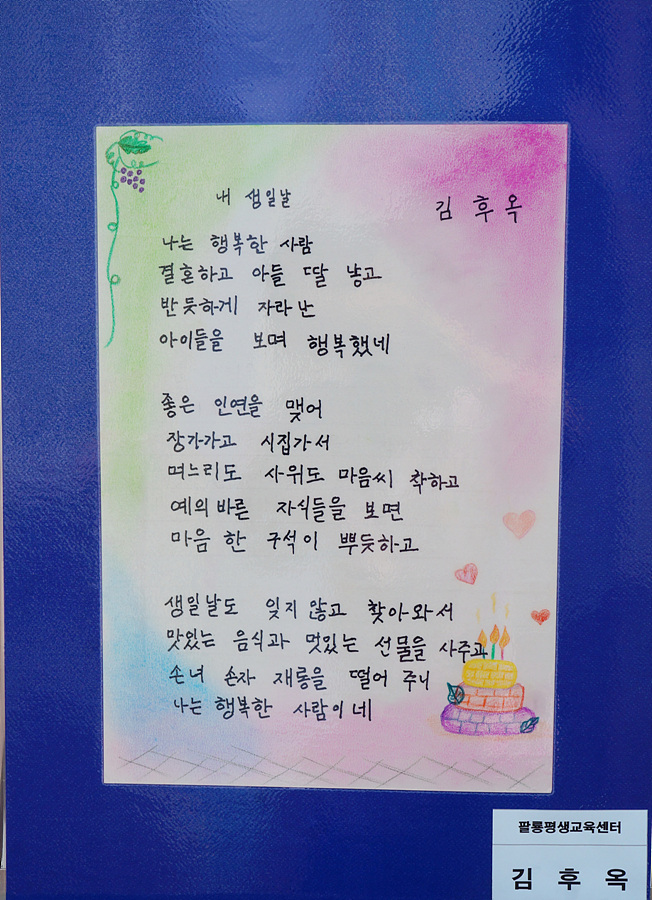 내 생일날
김 후 옥
나는 행복한 사람
결혼하고 아들 딸 낳고
반듯하게 자라난
아이들을 보며 행복했네
좋은 인연을 맺어
장가가고 시집가서
며느리도 사위도 마음씨 착하고
예의바른 자식들을 보면
마음 한 구석이 뿌듯하고
생일날도 잊지 않고 찾아와서
맛있는 음식과 멋있는 선물을 사주과
손녀 손자 재롱을 떨어 주니
나는 행복한 사람이네
팔룡평생교육센터
김 후 옥